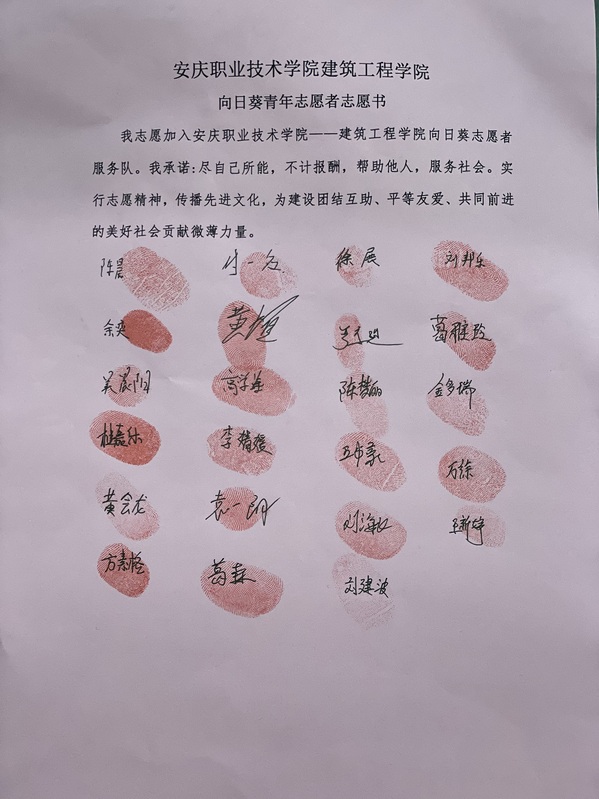 安庆职业技术学院建筑工程学院
向日葵青年志愿者志愿书
我志愿加入安庆职业技术学院——建筑工程学院向日葵志愿者
服务队。我承诺:尽自己所能，不计报酬，帮助他人，服务社会。实
行志愿精神，传播先进文化，为建设团结互助、平等友爱、共同前进
的美好社会贡献微薄力量。
陈晨 徐展 刘邦乐
余爽 葛雅玲
吴晨阳 陈梦丽 金多瑞
杜嘉乐 李婧媛 万徐
黄会龙 袁一朗 刘海红 王新婷
方素怪 葛森 刘建波